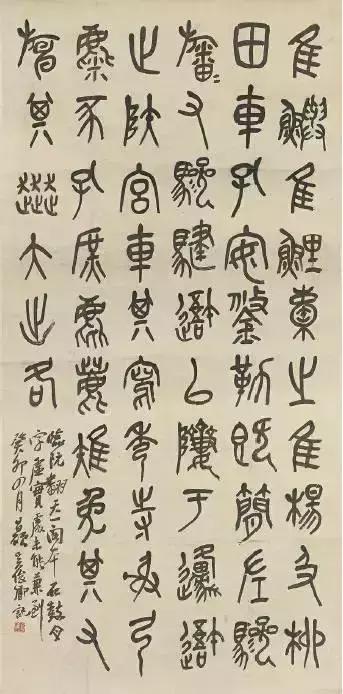 隹鱮隹鯉橐之隹楊及柳
田車孔安鋚勒既簡左驂
旛〻又驂騝避以隮于邍避
止陝宮車其寫秀寺射弓
麋豕孔庶麀鹿雉兔其又
旃其奔大出各
臨阮翻天一閣本石鼓全
字虛實處未能兼到
癸卯四月吳俊卿記